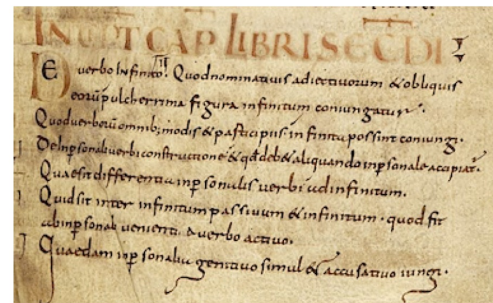 INCIPT CAP LIBRI SECDI
DE verbo Infinito. Quod nominativus adiectivorum & obliquis
eorū pulcherrima figura infinitum coniungatur.
Quod verborū omnibimodis & participiis infinita possint coniungi.
De Inpsonali verbi constructione & qd deb& aliquando inpsonale accipiat.
Quae sit differentia inpsonalis verbi ad infinitum.
Quid sit inter infinitum passivum & infinitum quod fit
ab inpsonali venienti a verbo activo.
Quaedam inpsonalia genitivo simul & accusativo iungi.